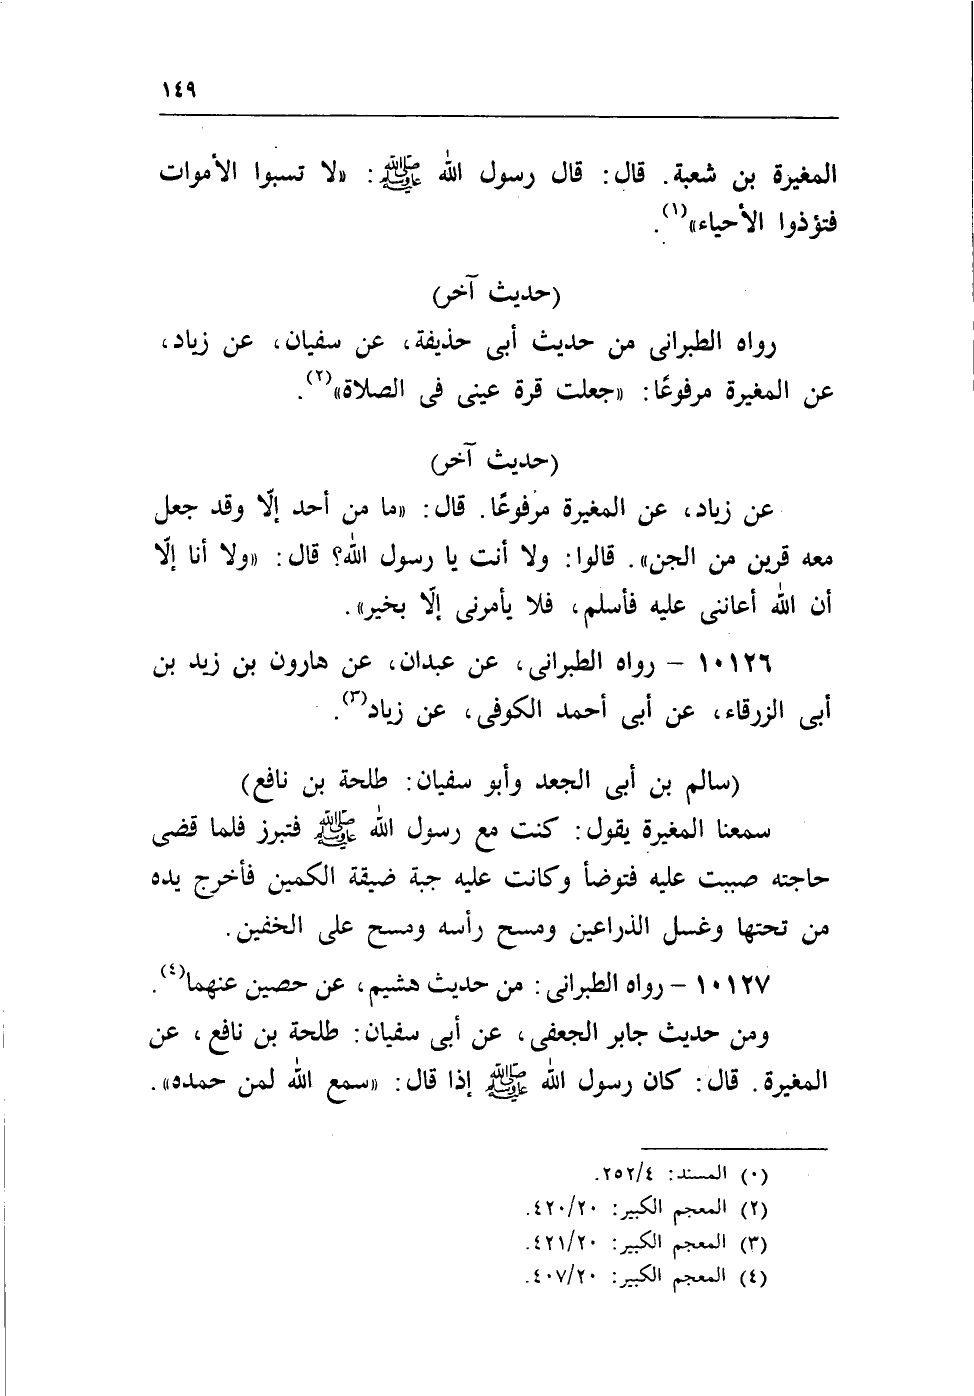 ١٤٩
المغيرة بن شعبة. قال: قال رسول الله ﷺ: «لا تسبوا الأموات
فتؤذوا الأحياء»(١).
(حديث آخر)
رواه الطبرانى من حديث أبى حذيفة، عن سفيان، عن زياد،
عن المغيرة مرفوعًا: «جعلت قرة عينى فى الصلاة»(٢).
(حديث آخر)
عن زياد، عن المغيرة مرفوعًا. قال: «ما من أحد إلّا وقد جعل
معه قرين من الجن». قالوا: ولا أنت يا رسول الله؟ قال: «ولا أنا إلّا
أن الله أعاننى عليه فأسلم، فلا يأمرنى إلّا بخير».
١٠١٢٦ – رواه الطبرانى، عن عبدان، عن هارون بن زيد بن
أبى الزرقاء، عن أبى أحمد الكوفى، عن زياد(٣).
(سالم بن أبى الجعد وأبو سفيان: طلحة بن نافع)
سمعنا المغيرة يقول: كنت مع رسول الله ﷺ فتبرز فلما قضى
حاجته صببت عليه فتوضأ وكانت عليه جبة ضيقة الكمين فأخرج يده
من تحتها وغسل الذراعين ومسح رأسه ومسح على الخفين.
١٠١٢٧ – رواه الطبرانى: من حديث هشيم، عن حصين عنهما(٤).
ومن حديث جابر الجعفى، عن أبى سفيان: طلحة بن نافع، عن
المغيرة. قال: كان رسول الله ﷺ إذا قال: «سمع الله لمن حمده».
(٠) المسند: ٢٥٢/٤.
(٢) المعجم الكبير: ٤٢٠/٢٠.
(٣) المعجم الكبير: ٤٢١/٢٠.
(٤) المعجم الكبير: ٤٠٧/٢٠.